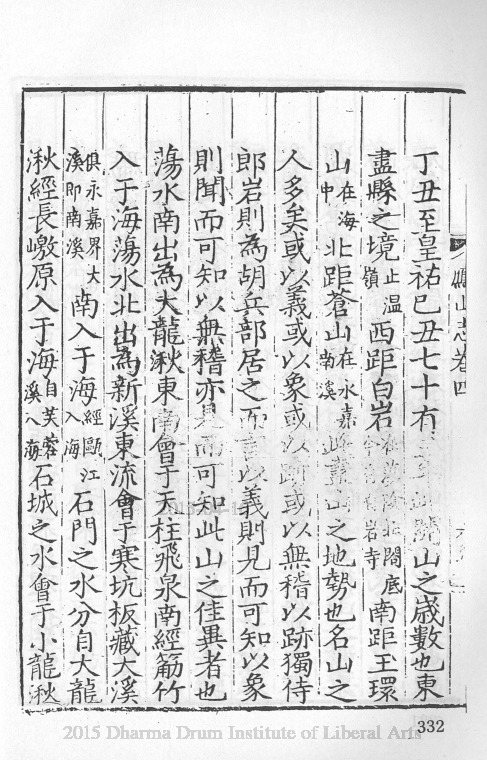 鴈山志卷四
丁丑至皇祐己丑七十有山之歲數也東
盡縣之境止溫嶺西距白岩北閣底岩寺南距玉環
山在海中北距蒼山在永嘉南溪此山之地勢也名山之
人多矣或以義或以象或以跡或以無稽以跡獨侍
郎岩則為胡兵部居之而言以義則見而可知以象
則聞而可知以無稽亦是而可知此山之佳異者也
蕩水南出為大龍湫東南會于天柱飛泉南經筋竹
入于海蕩水北出為新溪東流會于寒坑板藏大溪
俱永嘉界大溪即南溪南入于海經甌江入海石門之水分自大龍
湫經長嶝原入于海自芙蓉溪入海石城之水會于小龍湫
332
2015 Dharma Drum Institute of Liberal Arts